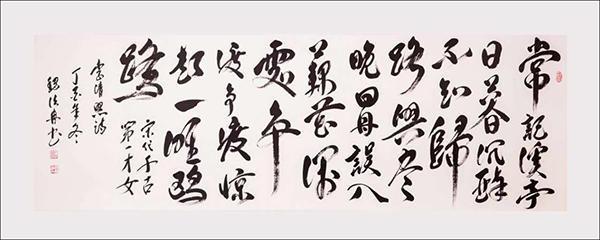 常記溪亭
日暮沉醉
不知歸
路興尽
晚回舟誤入
藕花深
處争
渡争渡惊
起一灘鷗
鷺
宋代千古
第一才女
李清照詩
丁亥年冬